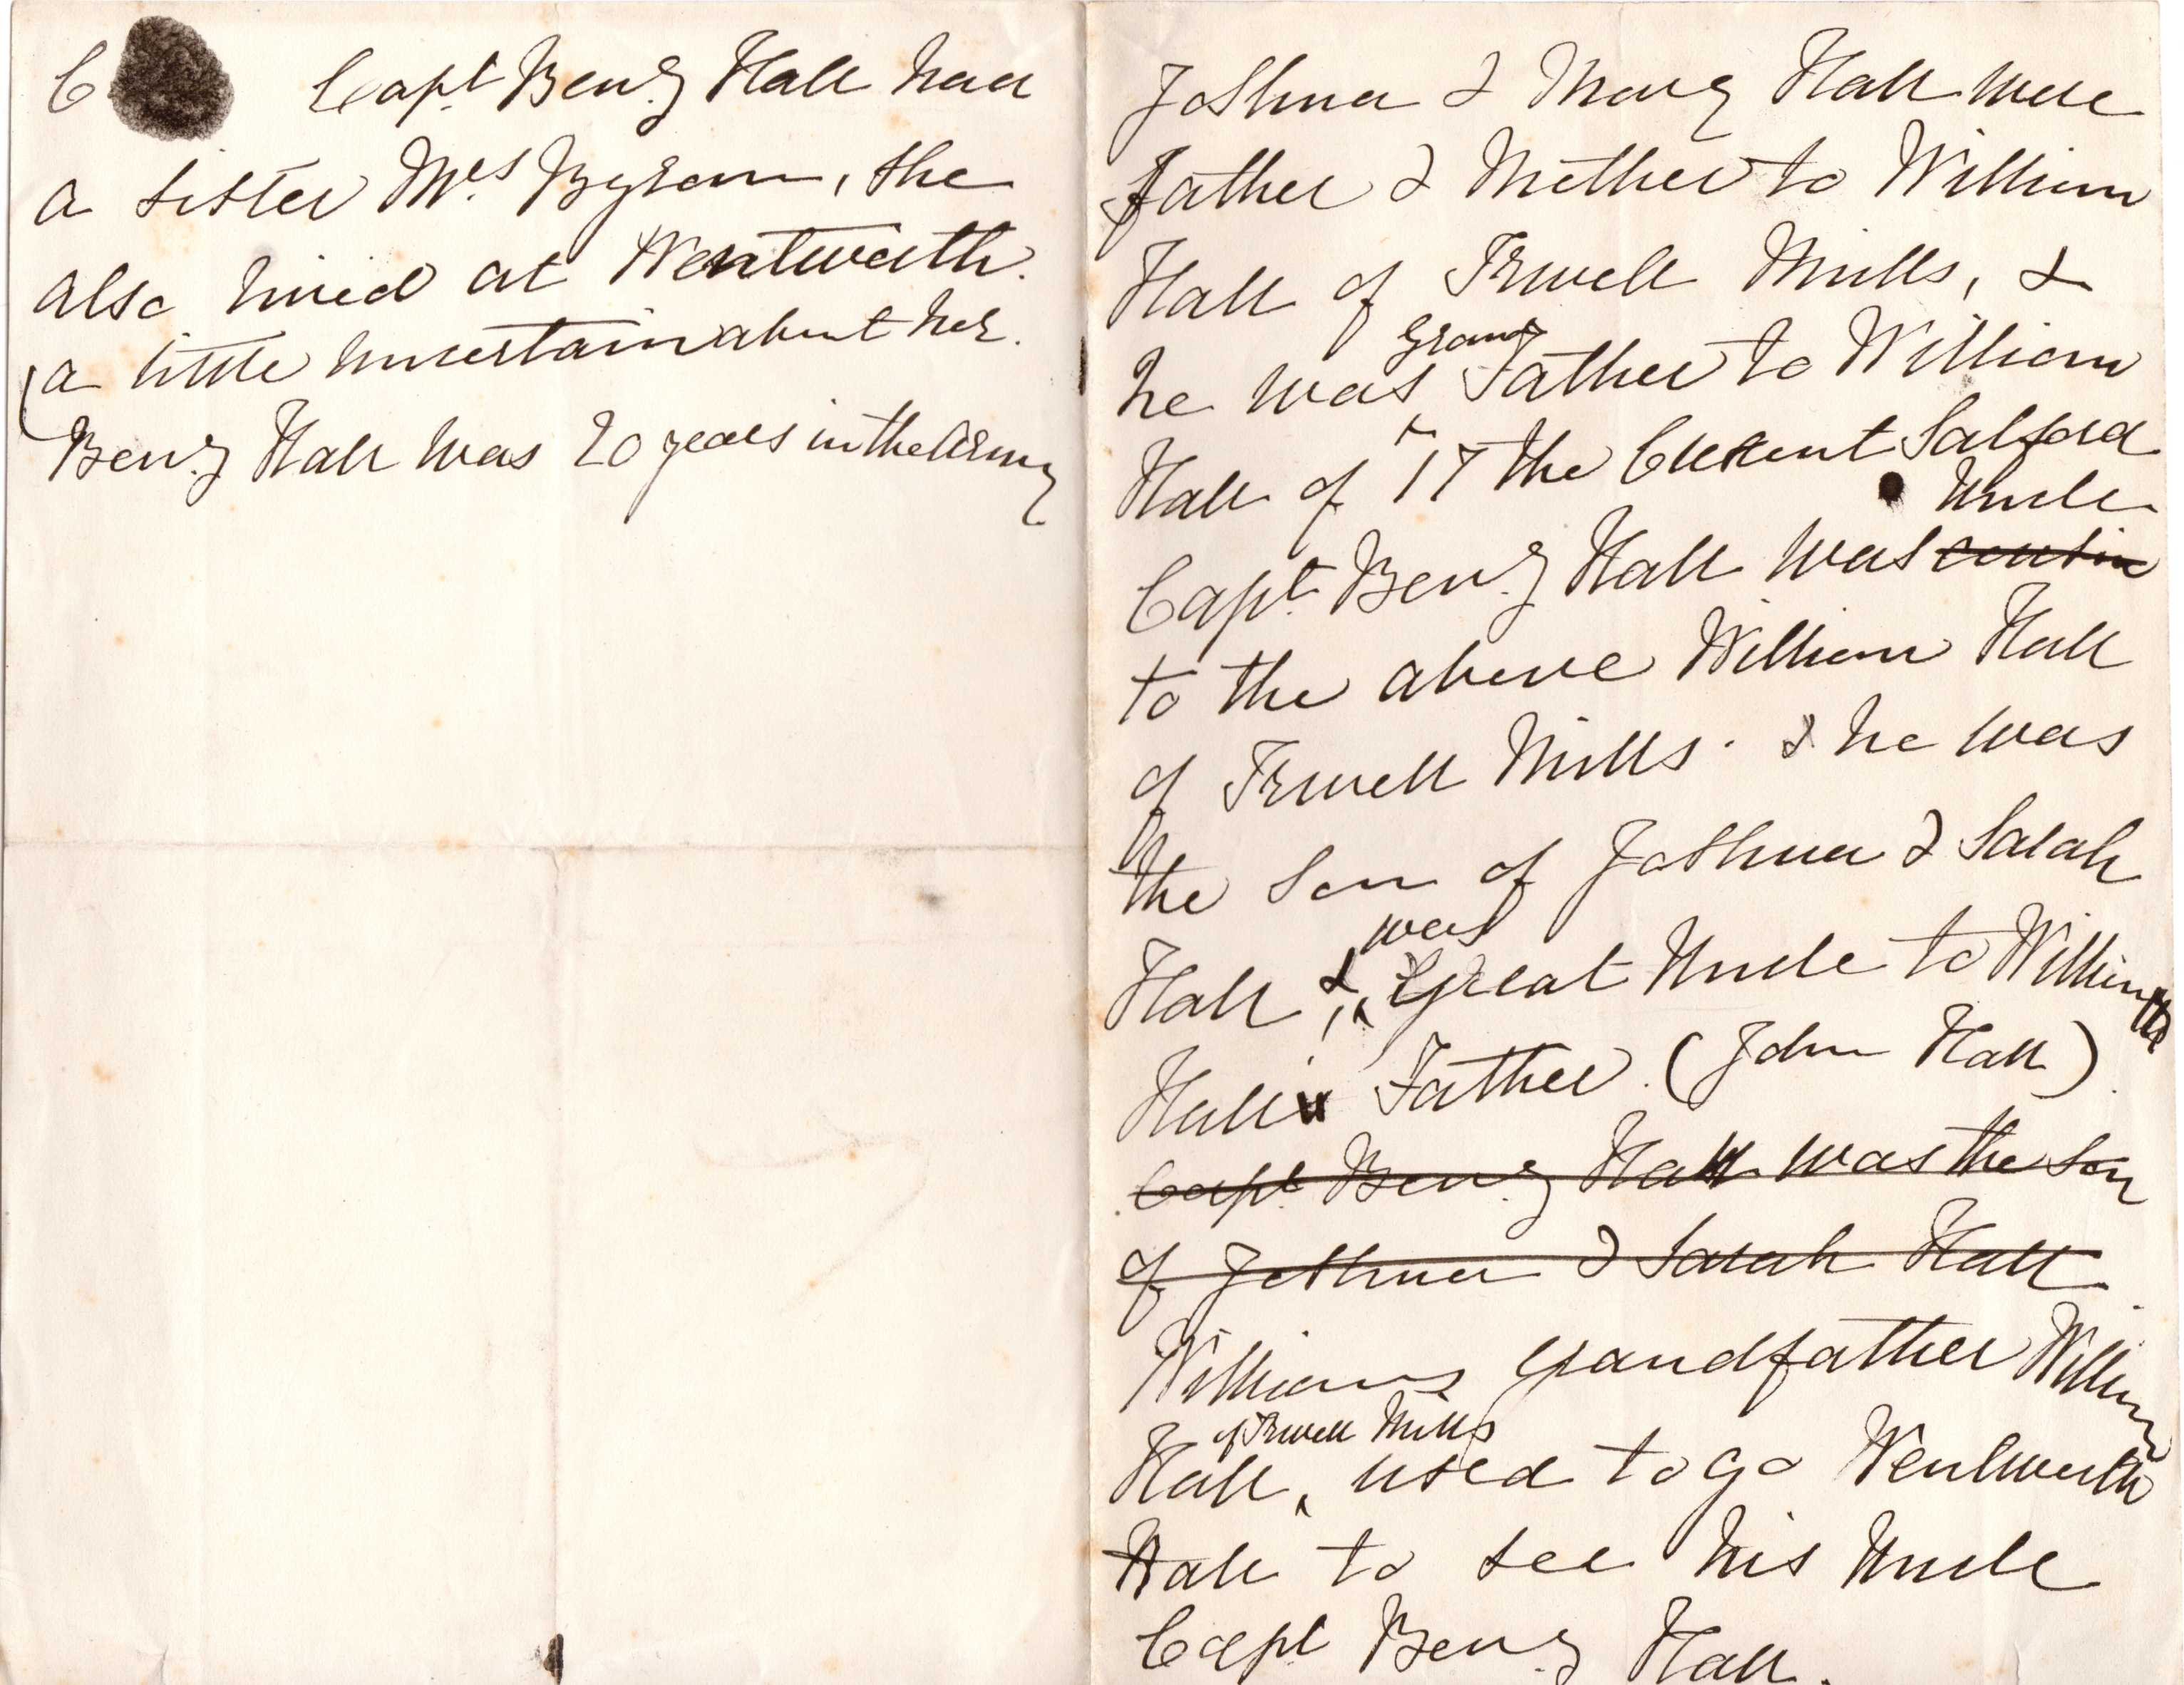 C Capt Benj Hall had
a sister Mrs Byrom, she
also lived at Wentworth.
(a little uncertain about her.
Benj Hall was 20 years in the Army
Joshua & Mary Hall were
father & Mother to William
Hall of Irwell Mills, &
Grand
he was Father to William
Hall of 17 the Crescent Salford
Uncle
Capt. Benj Hall was cousin
to the above William Hall
of Irwell Mills. & he was
the Son of Joshua & Sarah
was
Hall, & Great Uncle to William
Hall's Father. (John Hall).
Capt Benj Hall was the Son
of Joshua & Sarah Hall
Williams Grandfather William
of Irwell Mills
Hall, used to go Wentworth
Hall to see his Uncle
Capt Benj Hall.